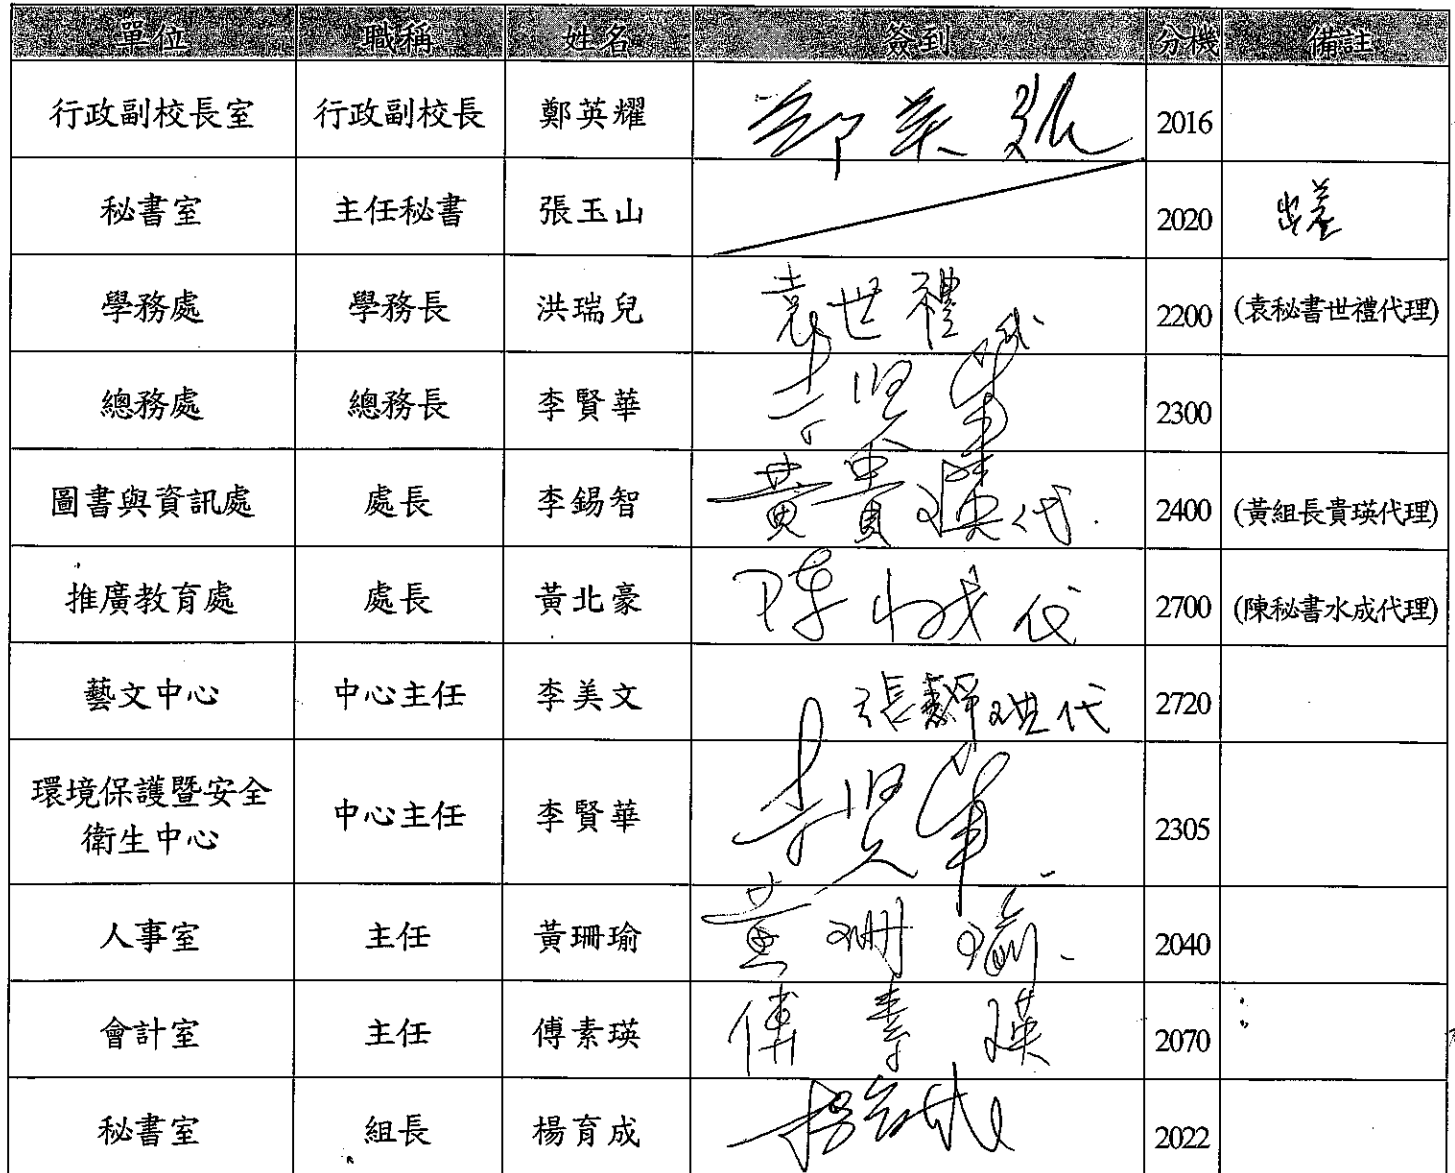 單位 職稱 姓名 簽到 分機 備註
行政副校長室 行政副校長 鄭英耀 鄭英耀 2016
秘書室 主任秘書 張玉山 2020 出差
學務處 學務長 洪瑞兒 袁世禮代 2200 (袁秘書世禮代理)
總務處 總務長 李賢華 李賢華 2300
圖書與資訊處 處長 李錫智 黃貴瑛代 2400 (黃組長貴瑛代理)
推廣教育處 處長 黃北豪 陳水成代 2700 (陳秘書水成代理)
藝文中心 中心主任 李美文 張靜琪代 2720
環境保護暨安全
衛生中心 中心主任 李賢華 李賢華 2305
人事室 主任 黃珊瑜 黃珊瑜 2040
會計室 主任 傅素瑛 傅素瑛 2070
秘書室 組長 楊育成 楊育成 2022